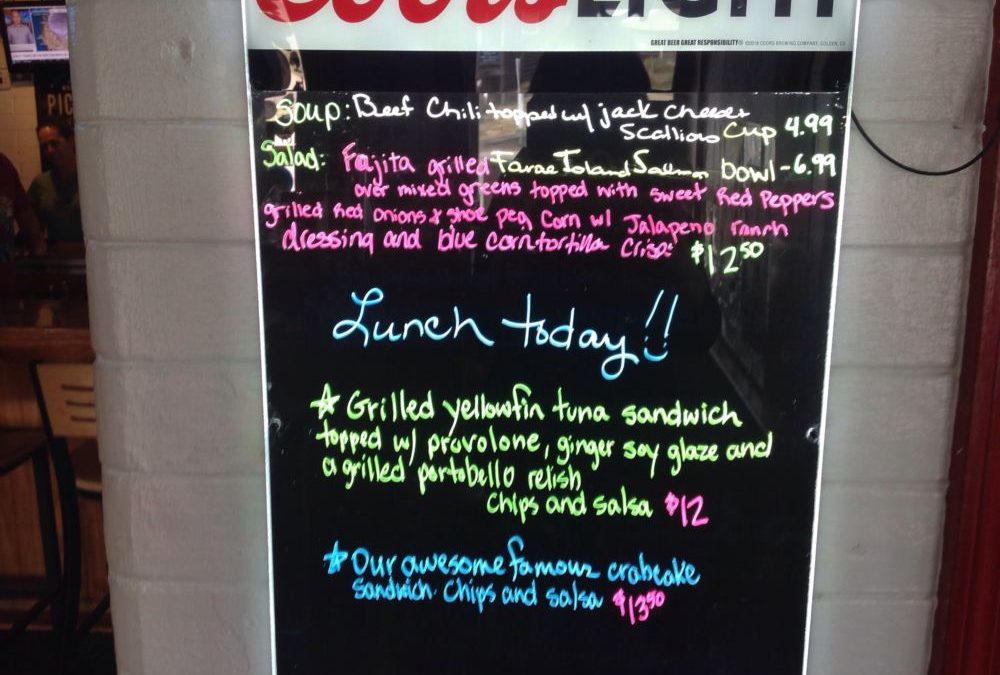 Coors LIGHT
GREAT BEER GREAT RESPONSIBILITY® ©2016 COORS BREWING COMPANY, GOLDEN, CO
PIC
Soup: Beef Chili topped w/ jack cheese &
Scallions Cup 4.99
Bowl - 6.99
Salad: Fajita grilled Faroe Island Salmon
over mixed greens topped with sweet Red Peppers
grilled Red onions & shoe peg corn w/ Jalapeno ranch
dressing and blue corn tortilla crisps $12.50
Lunch today!!
☆ Grilled yellowfin tuna sandwich
topped w/ provolone, ginger soy glaze and
a grilled portobello relish
Chips and salsa $12
☆ Our awesome famous crabcake
sandwich. Chips and salsa $13.50